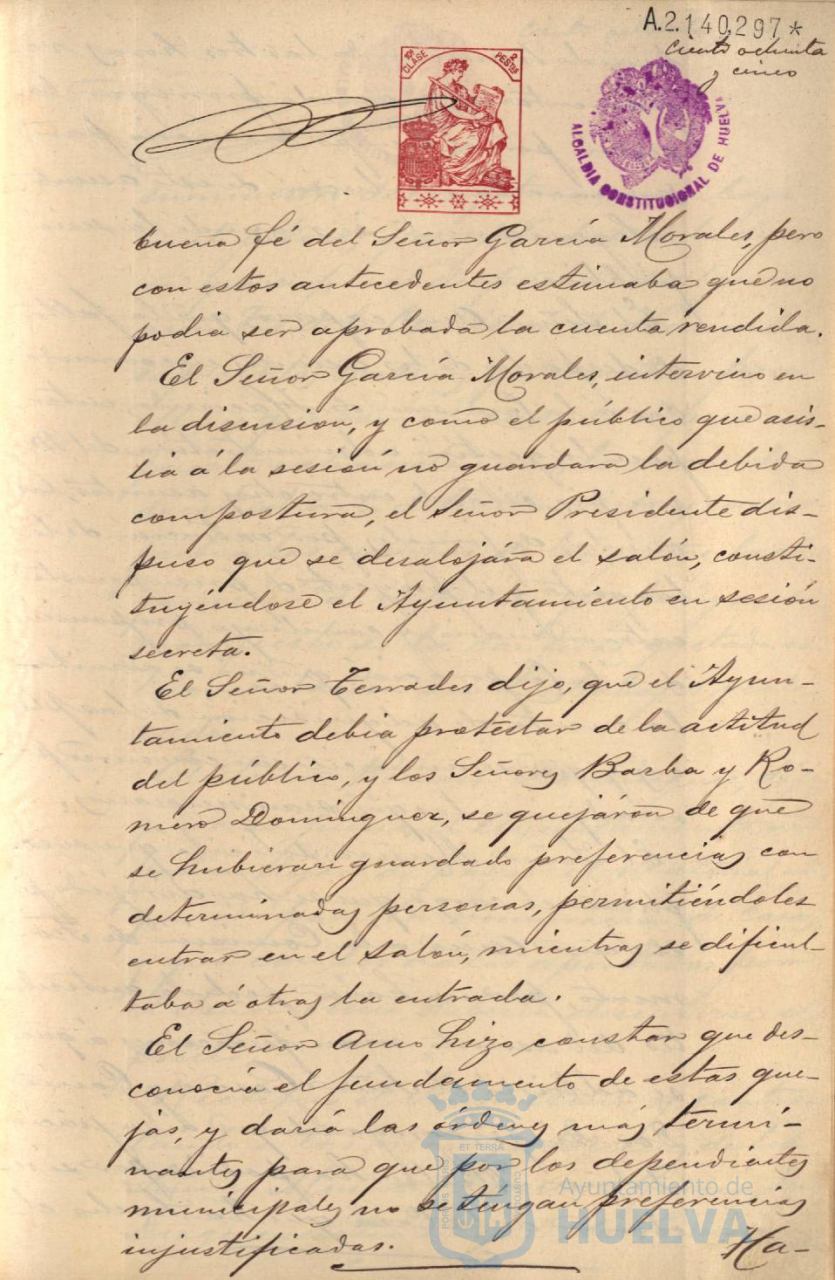 A.2.140,297*
ciento ochenta
y cinco
10ª CLASE 2 PESETAS
ALCALDIA CONSTITUCIONAL DE HUELVA
buena fé del Señor García Morales, pero
con estos antecedentes estimaba que no
podia ser aprobada la cuenta rendida.
El Señor García Morales, intervino en
la discusión, y como el público que asis-
tia á la sesión no guardara la debida
compostura, el Señor Presidente dis-
puso que se desalojára el salón, consti-
tuyéndose el Ayuntamiento en sesión
secreta.
El Señor Terrades dijo, que el Ayun-
tamiento debia protestar de la actitud
del público, y los Señores Barba y Ro-
mero Dominguez, se quejáron de que
se hubieran guardado preferencias con
determinadas personas, permitiéndoles
entrar en el salón, mientras se dificul-
taba á otras la entrada.
El Señor Amo hizo constar que des-
conocía el fundamento de estas que-
jas, y daría las órdenes más termi-
nantes para que por los dependientes
municipales no se tengan preferencias
injustificadas. Ha-
ET TERRA
Ayuntamiento de
HUELVA